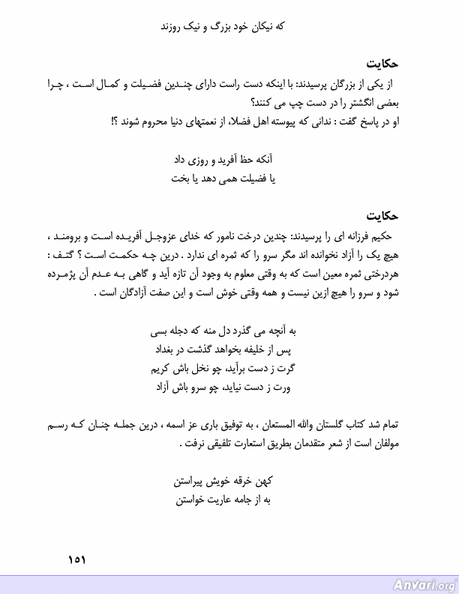 که نیکان خود بزرگ و نیک روزند
حکایت
از یکی از بزرگان پرسیدند: با اینکه دست راست دارای چندین فضیلت و کمال است ، چرا
بعضی انگشتر را در دست چپ می کنند؟
او در پاسخ گفت : ندانی که پیوسته اهل فضلا، از نعمتهای دنیا محروم شوند ؟!
آنکه حظ آفرید و روزی داد
یا فضیلت همی دهد یا بخت
حکایت
حکیم فرزانه ای را پرسیدند: چندین درخت نامور که خدای عزوجل آفریده است و برومند ،
هیچ یک را آزاد نخوانده اند مگر سرو را که ثمره ای ندارد . درین چه حکمت است ؟ گتف :
هردرختی ثمره معین است که به وقتی معلوم به وجود آن تازه آید و گاهی به عدم آن پژمرده
شود و سرو را هیچ ازین نیست و همه وقتی خوش است و این صفت آزادگان است .
به آنچه می گذرد دل منه که دجله بسی
پس از خلیفه بخواهد گذشت در بغداد
گرت ز دست برآید، چو نخل باش کریم
ورت ز دست نیاید، چو سرو باش آزاد
تمام شد کتاب گلستان والله المستعان ، به توفیق باری عز اسمه ، درین جمله چنان که رسم
مولفان است از شعر متقدمان بطریق استعارت تلفیقی نرفت .
کهن خرقه خویش پیراستن
به از جامه عاریت خواستن
۱۵۱
Anvari.org